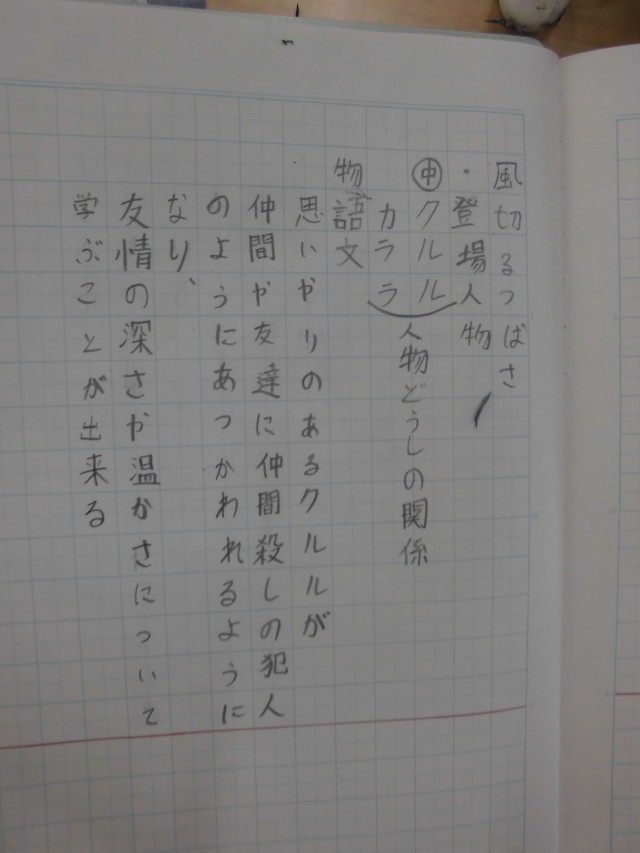 風切るつばさ
・登場人物
㊥クルル
カララ
人物どうしの関係
物語文
思いやりのあるクルルが
仲間や友達に仲間殺しの犯人
のようにあつかわれるように
なり、
友情の深さや温かさについて
学ぶことが出来る